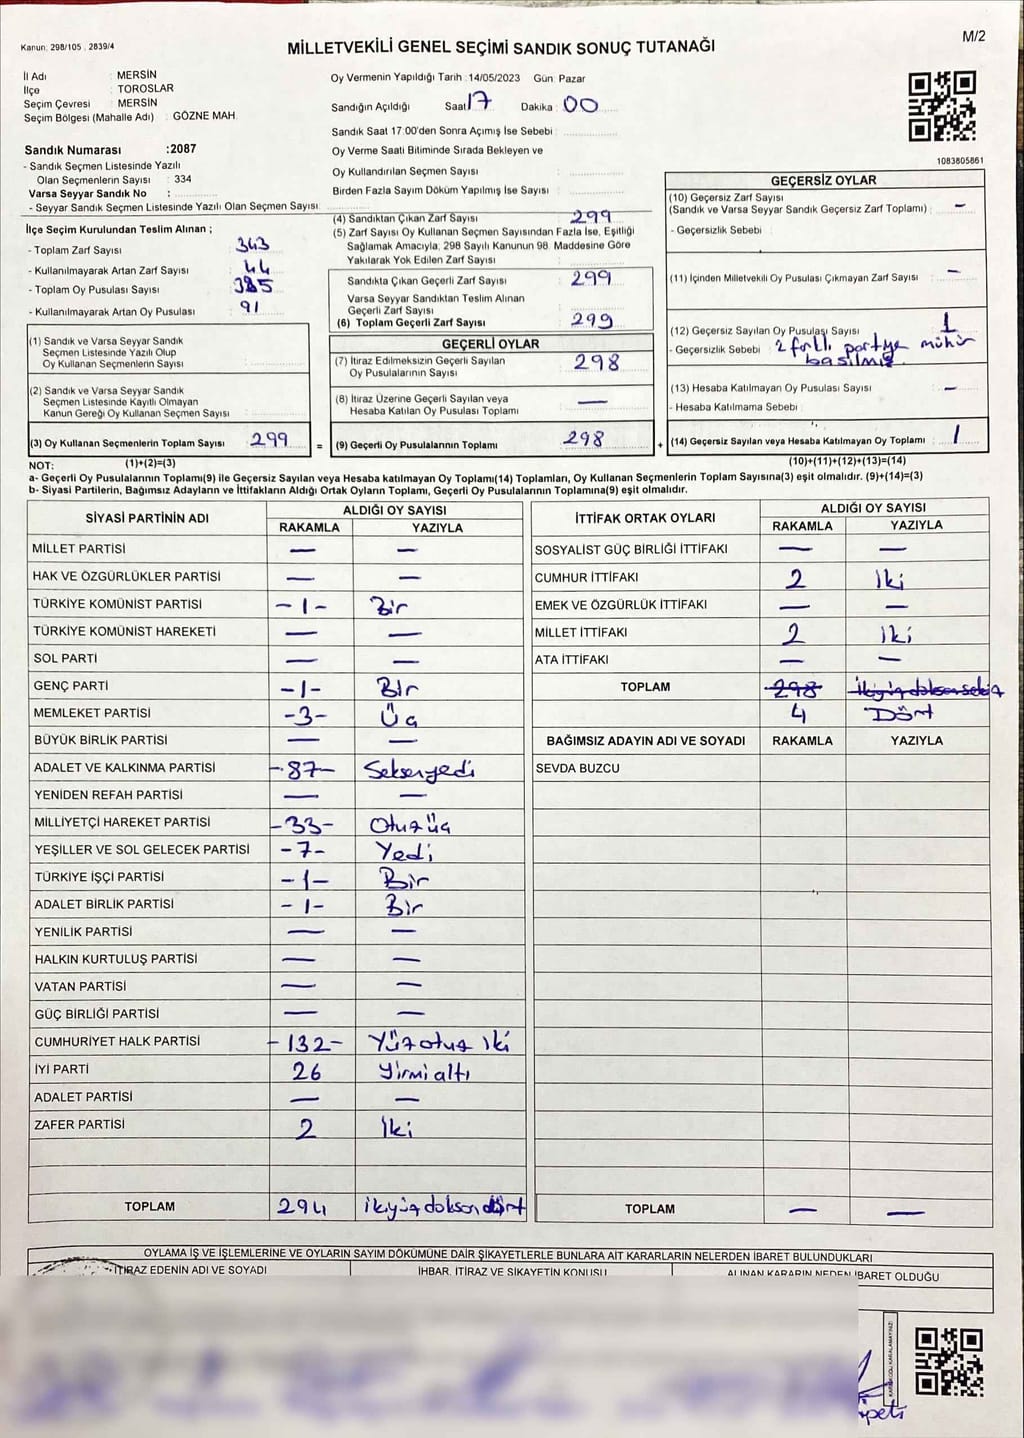 Kanun: 298/105 , 2839/4
M/2
MİLLETVEKİLİ GENEL SEÇİMİ SANDIK SONUÇ TUTANAĞI
İl Adı : MERSİN
İlçe : TOROSLAR
Seçim Çevresi : MERSİN
Seçim Bölgesi (Mahalle Adı) : GÖZNE MAH.
Sandık Numarası :2087
- Sandık Seçmen Listesinde Yazılı
Olan Seçmenlerin Sayısı : 334
Varsa Seyyar Sandık No :
- Seyyar Sandık Seçmen Listesinde Yazılı Olan Seçmen Sayısı:
Oy Vermenin Yapıldığı Tarih :14/05/2023 Gün: Pazar
Sandığın Açıldığı Saat 17 Dakika : 00
Sandık Saat 17:00'den Sonra Açımış İse Sebebi :
Oy Verme Saati Bitiminde Sırada Bekleyen ve
Oy Kullandırılan Seçmen Sayısı :
Birden Fazla Sayım Döküm Yapılmış İse Sayısı :
1083805861
İlçe Seçim Kurulundan Teslim Alınan ;
- Toplam Zarf Sayısı : 343
- Kullanılmayarak Artan Zarf Sayısı : 44
- Toplam Oy Pusulası Sayısı : 385
- Kullanılmayarak Artan Oy Pusulası : 91
(1) Sandık ve Varsa Seyyar Sandık
Seçmen Listesinde Yazılı Olup
Oy Kullanan Seçmenlerin Sayısı :
(2) Sandık ve Varsa Seyyar Sandık
Seçmen Listesinde Kayıtlı Olmayan
Kanun Gereği Oy Kullanan Seçmen Sayısı :
(3) Oy Kullanan Seçmenlerin Toplam Sayısı : 299 =
(4) Sandıktan Çıkan Zarf Sayısı : 299
(5) Zarf Sayısı Oy Kullanan Seçmen Sayısından Fazla İse, Eşitliği
Sağlamak Amacıyla, 298 Sayılı Kanunun 98. Maddesine Göre
Yakılarak Yok Edilen Zarf Sayısı :
Sandıkta Çıkan Geçerli Zarf Sayısı : 299
Varsa Seyyar Sandıktan Teslim Alınan
Geçerli Zarf Sayısı :
(6) Toplam Geçerli Zarf Sayısı : 299
GEÇERLİ OYLAR
(7) İtiraz Edilmeksizin Geçerli Sayılan
Oy Pusulalarının Sayısı : 298
(8) İtiraz Üzerine Geçerli Sayılan veya
Hesaba Katılan Oy Pusulası Toplamı : —
(9) Geçerli Oy Pusulalarının Toplamı : 298 +
GEÇERSİZ OYLAR
(10) Geçersiz Zarf Sayısı
(Sandık ve Varsa Seyyar Sandık Geçersiz Zarf Toplamı) : -
- Geçersizlik Sebebi :
(11) İçinden Milletvekili Oy Pusulası Çıkmayan Zarf Sayısı : -
(12) Geçersiz Sayılan Oy Pusulası Sayısı : 1
- Geçersizlik Sebebi : 2 farklı partiye mühür
basılmış
(13) Hesaba Katılmayan Oy Pusulası Sayısı : -
- Hesaba Katılmama Sebebi :
(14) Geçersiz Sayılan veya Hesaba Katılmayan Oy Toplamı : 1
NOT: (1)+(2)=(3)
(10)+(11)+(12)+(13)=(14)
a- Geçerli Oy Pusulalarının Toplamı(9) ile Geçersiz Sayılan veya Hesaba katılmayan Oy Toplamı(14) Toplamları, Oy Kullanan Seçmenlerin Toplam Sayısına(3) eşit olmalıdır. (9)+(14)=(3)
b- Siyasi Partilerin, Bağımsız Adayların ve İttifakların Aldığı Ortak Oyların Toplamı, Geçerli Oy Pusulalarının Toplamına(9) eşit olmalıdır.
SİYASİ PARTİNİN ADI
ALDIĞI OY SAYISI
RAKAMLA YAZIYLA
MİLLET PARTİSİ — —
HAK VE ÖZGÜRLÜKLER PARTİSİ — —
TÜRKİYE KOMÜNİST PARTİSİ -1- Bir
TÜRKİYE KOMÜNİST HAREKETİ — —
SOL PARTİ — —
GENÇ PARTİ -1- Bir
MEMLEKET PARTİSİ -3- Üç
BÜYÜK BİRLİK PARTİSİ — —
ADALET VE KALKINMA PARTİSİ -87- Seksenyedi
YENİDEN REFAH PARTİSİ — —
MİLLİYETÇİ HAREKET PARTİSİ -33- Otuzüç
YEŞİLLER VE SOL GELECEK PARTİSİ -7- Yedi
TÜRKİYE İŞÇİ PARTİSİ -1- Bir
ADALET BİRLİK PARTİSİ -1- Bir
YENİLİK PARTİSİ — —
HALKIN KURTULUŞ PARTİSİ — —
VATAN PARTİSİ — —
GÜÇ BİRLİĞİ PARTİSİ — —
CUMHURİYET HALK PARTİSİ -132- Yüzotuz iki
İYİ PARTİ 26 Yirmialtı
ADALET PARTİSİ — —
ZAFER PARTİSİ 2 İki
TOPLAM 294 ikiyüzdoksandört
İTTİFAK ORTAK OYLARI
ALDIĞI OY SAYISI
RAKAMLA YAZIYLA
SOSYALİST GÜÇ BİRLİĞİ İTTİFAKI — —
CUMHUR İTTİFAKI 2 İki
EMEK VE ÖZGÜRLÜK İTTİFAKI — —
MİLLET İTTİFAKI 2 İki
ATA İTTİFAKI — —
TOPLAM 298 İkiyüzdoksansekiz
4 Dört
BAĞIMSIZ ADAYIN ADI VE SOYADI RAKAMLA YAZIYLA
SEVDA BUZCU
TOPLAM — —
OYLAMA İŞ VE İŞLEMLERİNE VE OYLARIN SAYIM DÖKÜMÜNE DAİR ŞİKAYETLERLE BUNLARA AİT KARARLARIN NELERDEN İBARET BULUNDUKLARI
İTİRAZ EDENİN ADI VE SOYADI
İHBAR, İTİRAZ VE ŞİKAYETİN KONUSU
ALINAN KARARIN NEDEN İBARET OLDUĞU